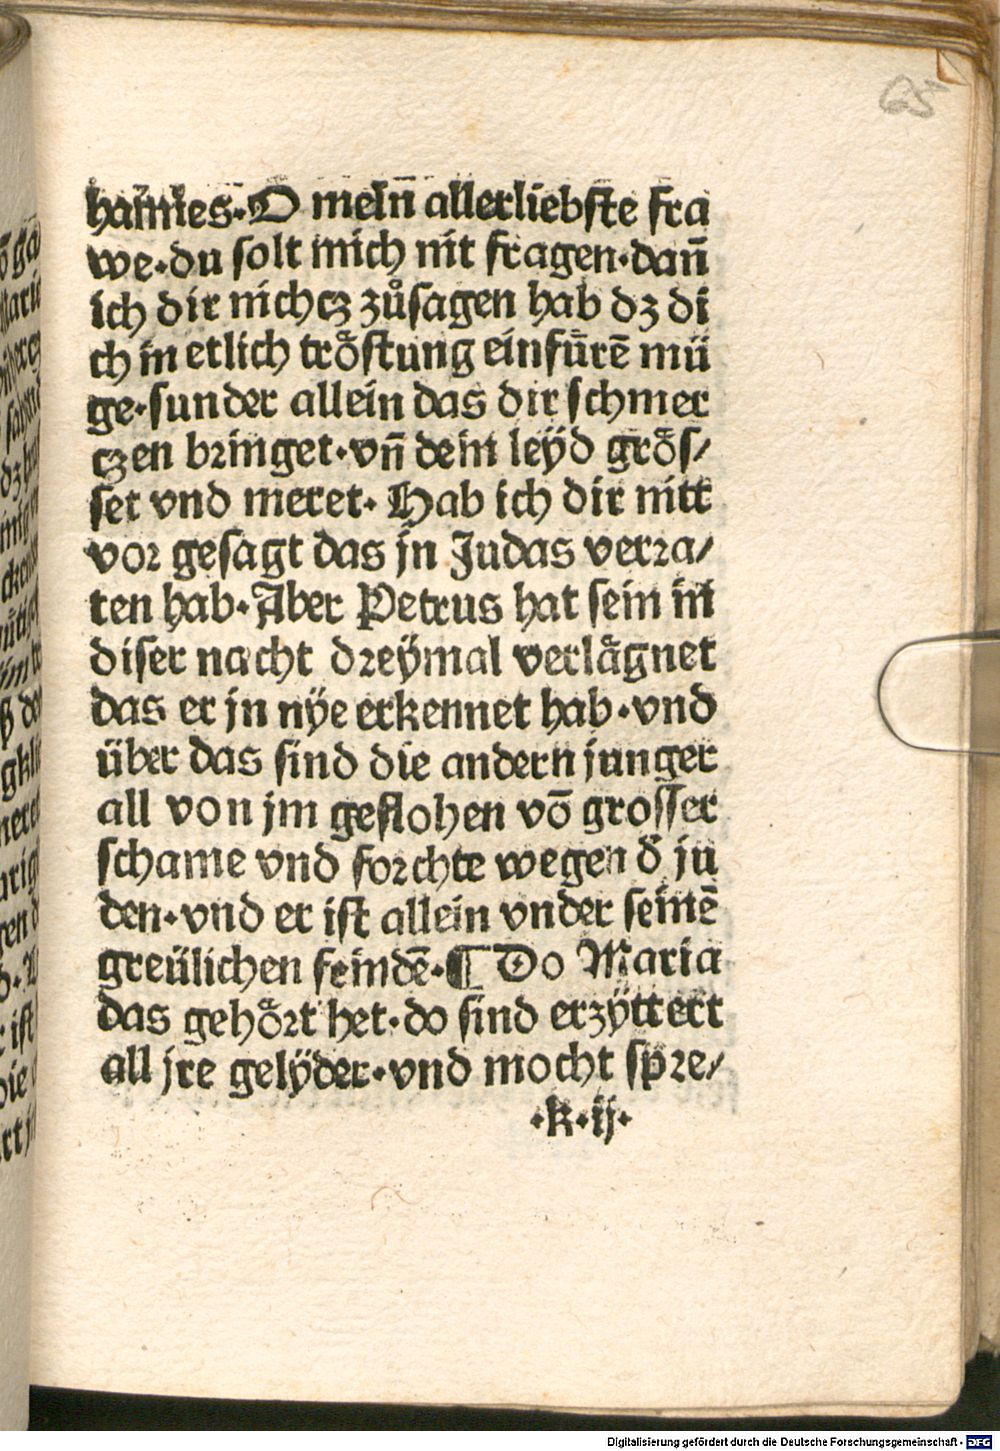 65
hannes·O mein̄ allerliebste fra
we·du solt mich nit fragen·dan̄
ich dir nichcz zůsagen hab dz di
ch in etlich trö́stung einfürē mü
ge·sunder allein das dir schmer
czen bringet·vn̄ dein leÿd grös/
ser vnd meret·Hab ich dir nitt
vor gesagt das jn Judas verra/
ten hab·Aber Petrus hat sein in
diser nacht dreÿmal verlågnet
das er jn nÿe erkennet hab·vnd
über das sind die andern junger
all von jm geflohen vō grosser
schame vnd forchte wegen d̄ ju
den·vnd er ist allein vnder seinē
greülichen feindē·¶ Do Maria
das gehört het·do sind erzÿttert
all jre gelÿder·vnd mocht spre/
·k·ij·
Digitalisierung gefördert durch die Deutsche Forschungsgemeinschaft - DFG